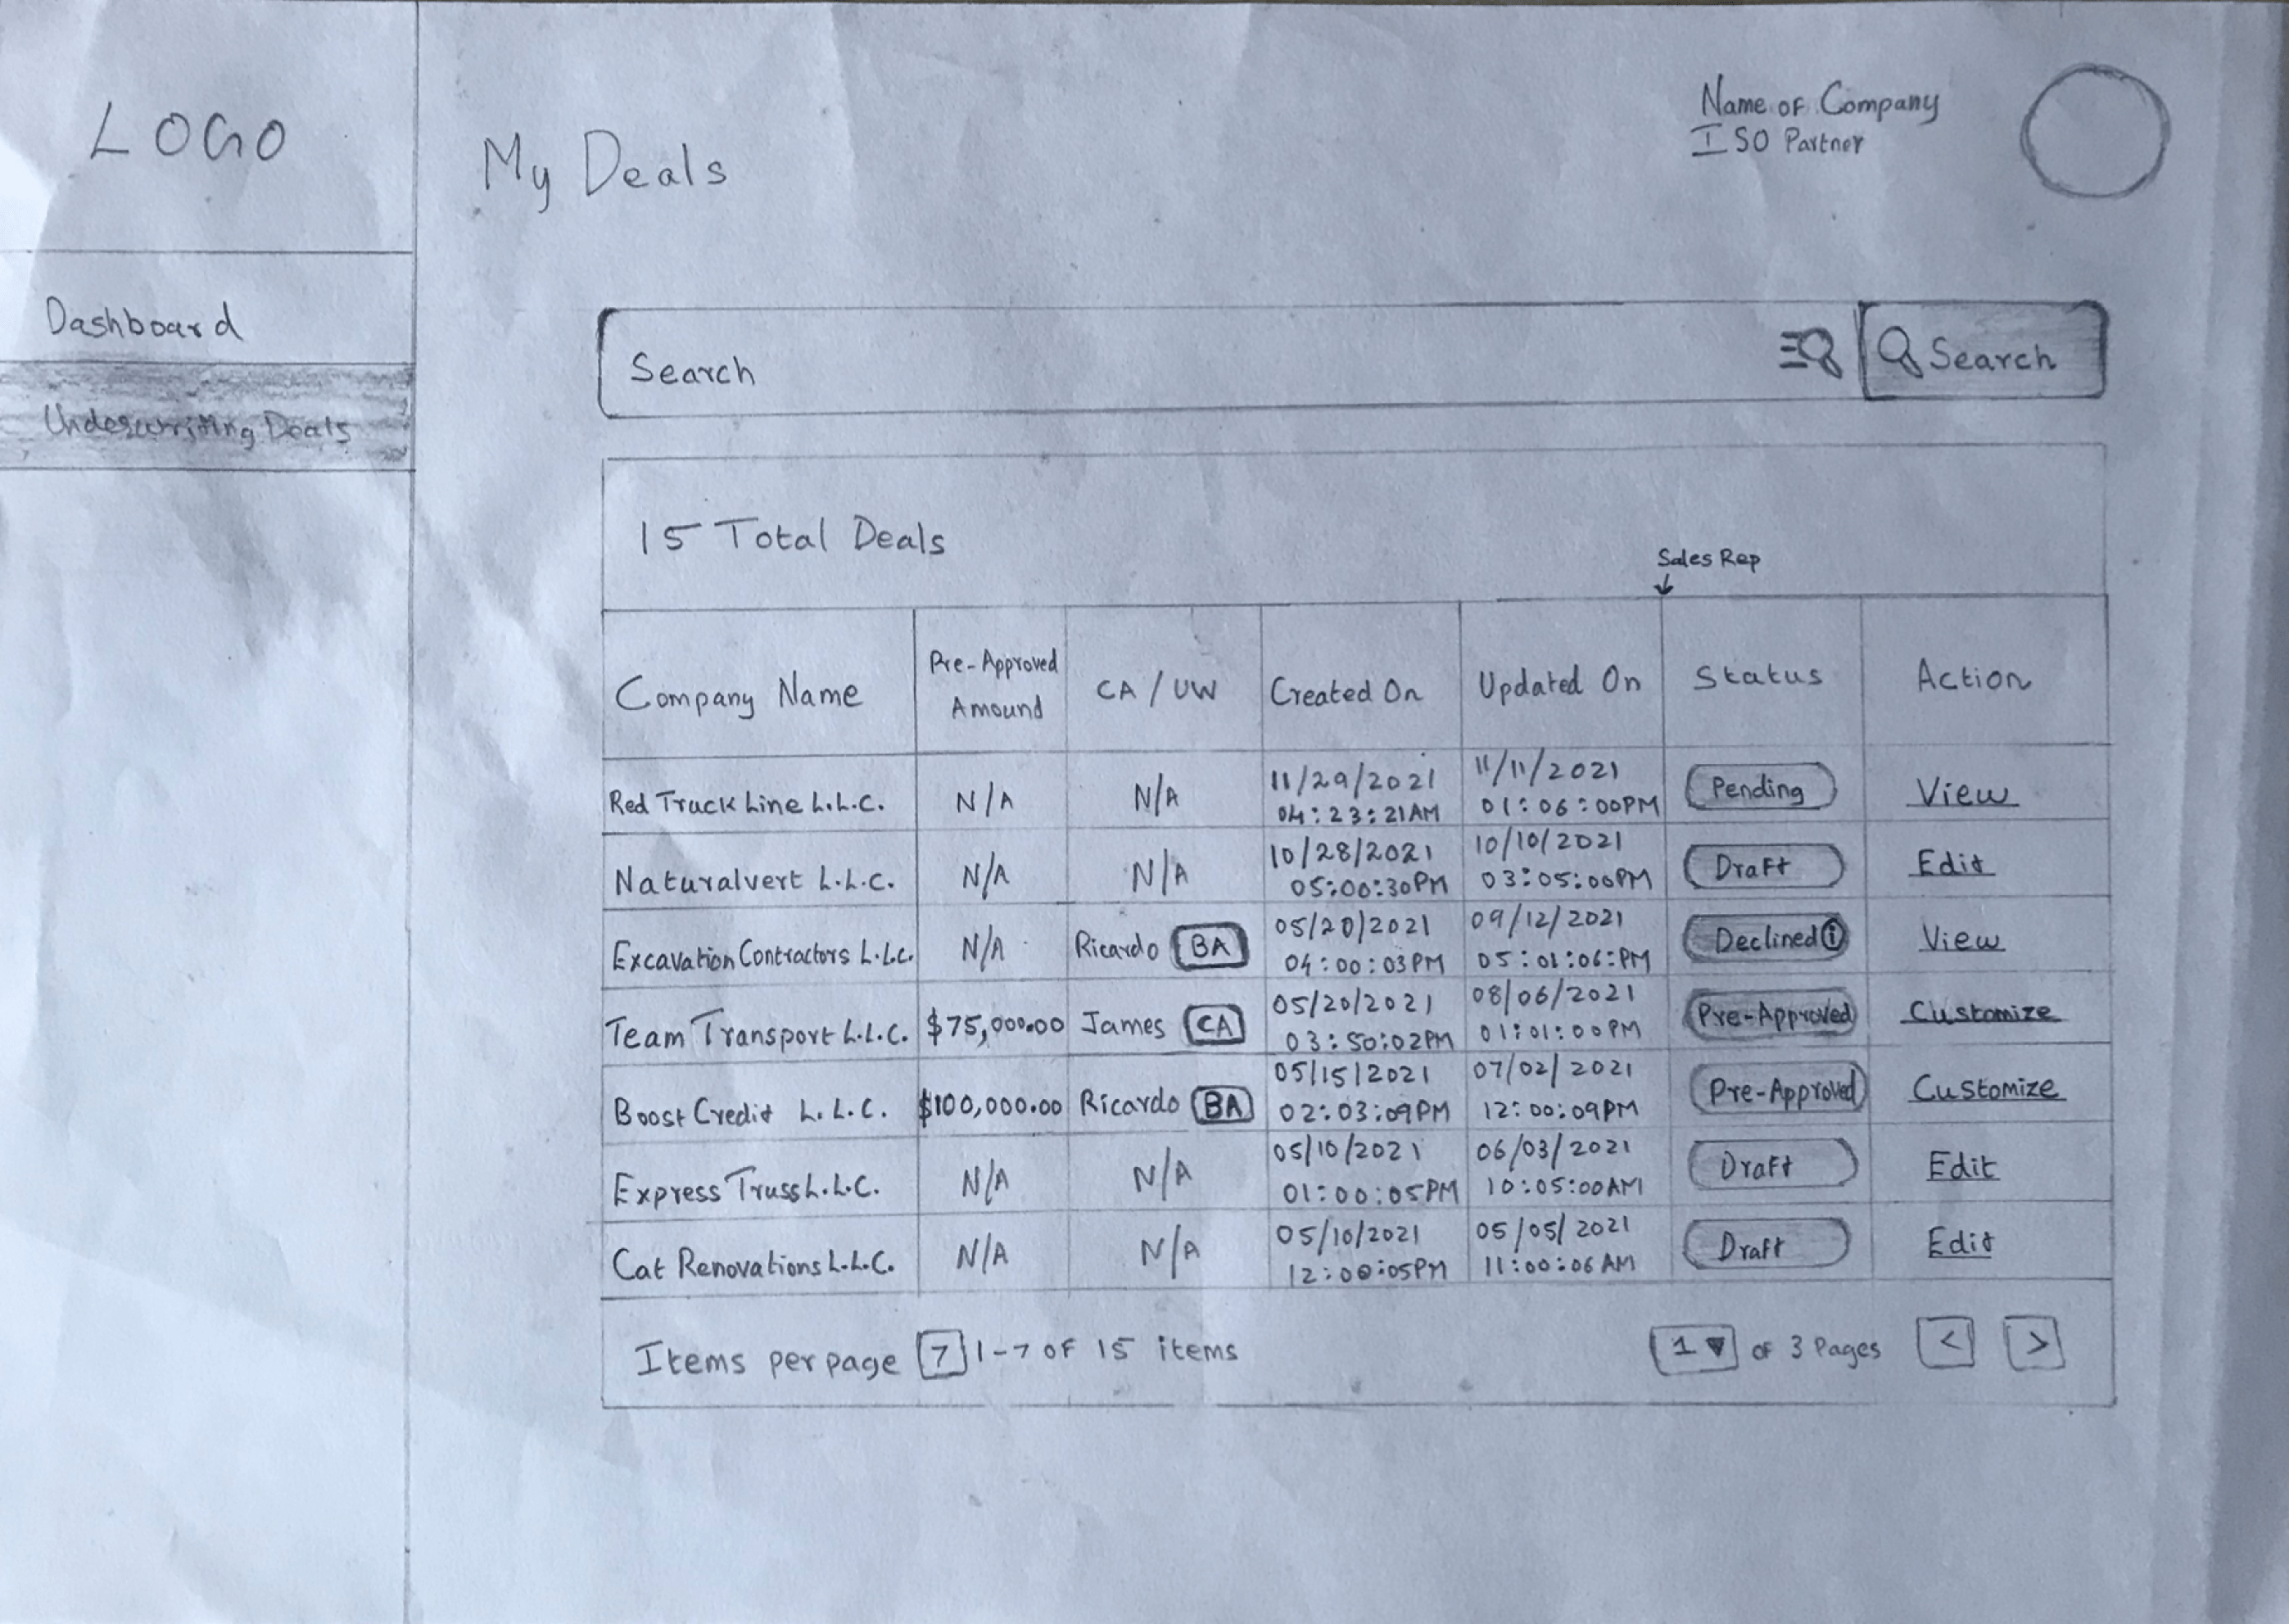 LOGO
Name of Company
ISO Partner
My Deals
Dashboard
Underwriting Deals
Search
Search
15 Total Deals
Sales Rep
Company Name
Pre-Approved
Amound
CA / UW
Created On
Updated On
Status
Action
Red Truck Line L.L.C.
N/A
N/A
11/29/2021
04:23:21AM
11/11/2021
01:06:00PM
Pending
View
Naturalvert L.L.C.
N/A
N/A
10/28/2021
05:00:30PM
10/10/2021
03:05:00PM
Draft
Edit
Excavation Contractors L.L.C.
N/A
Ricardo BA
05/20/2021
04:00:03PM
09/12/2021
05:01:06:PM
Declined i
View
Team Transport L.L.C.
$75,000.00
James CA
05/20/2021
03:50:02PM
08/06/2021
01:01:00PM
Pre-Approved
Customize
Boost Credit L.L.C.
$100,000.00
Ricardo BA
05/15/2021
02:03:09PM
07/02/2021
12:00:09PM
Pre-Approved
Customize
Express Truss L.L.C.
N/A
N/A
05/10/2021
01:00:05PM
06/03/2021
10:05:00AM
Draft
Edit
Cat Renovations L.L.C.
N/A
N/A
05/10/2021
12:00:05PM
05/05/2021
11:00:06AM
Draft
Edit
Items per page 7 1-7 OF 15 items
1 ▼ of 3 Pages < >